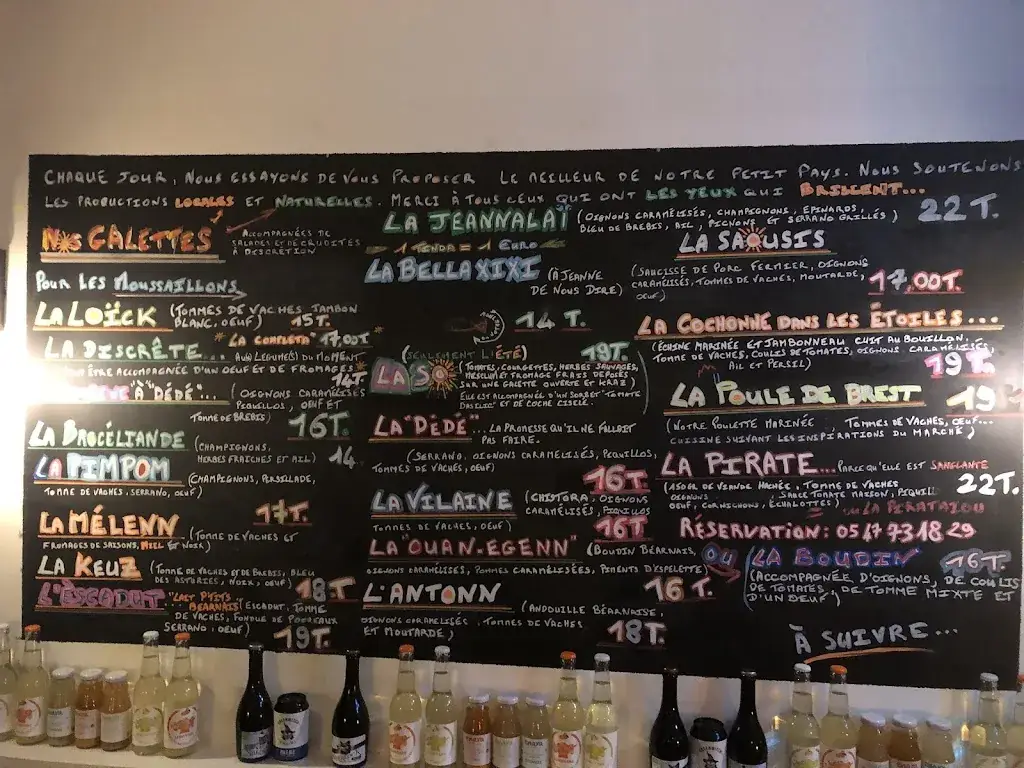 CHAQUE JOUR, NOUS ESSAYONS DE VOUS PROPOSER LE MEILLEUR DE NOTRE PETIT PAYS. NOUS SOUTENONS
LES PRODUCTIONS LOCALES ET NATURELLES. MERCI À TOUS CEUX QUI ONT LES YEUX QUI BRILLENT...
NOS GALETTES
ACCOMPAGNÉES DE
SALADES ET DE CRUDITÉS
À DISCRÉTION
POUR LES MOUSSAILLONS
LA LOÏCK (TOMMES DE VACHES, JAMBON
BLANC, OEUF) 15T.
LA DISCRÊTE... AU(X) LÉGUME(S) DU MOMENT
* LA COMPLÈTE 17,00T
ÊTRE ACCOMPAGNÉE D'UN OEUF ET DE FROMAGES*
14T.
"À DÉDÉ"... (OIGNONS CARAMÉLISÉS
PEQUILLOS, OEUF ET
TOMME DE BREBIS) 16T.
LA BROCÉLIANDE (CHAMPIGNONS,
HERBES FRAÎCHES ET AIL) 14
LA PIMPOM (CHAMPIGNONS, PERSILLADE,
TOMME DE VACHES, SERRANO, OEUF) 17T.
LA MÉLENN (TOMME DE VACHES ET
FROMAGES DE SAISONS, MIEL ET NOIX)
LA KEUZ (TOMME DE VACHES ET DE BREBIS, BLEU
DES ASTURIES, NOIX, OEUF) 18T.
L'ESCAOUT "LAET P'TITS
BÉARNAIS" (ESCAOUT, TOMME
DE VACHES, FONDUE DE POIREAUX
SERRANO, OEUF) 19T.
LA JEANNALAÏ (OIGNONS CARAMÉLISÉS, CHAMPIGNONS, EPINARDS,
BLEU DE BREBIS, AIL, PIGNONS ET SERRANO GRILLÉS) 22T.
1 TINDA = 1 EURO
LA BELLA XIXI (À JEANNE
DE NOUS DIRE)
14 T.
(SEULEMENT L'ÉTÉ) 19T.
LA SO (TOMATES, COURGETTES, HERBES SAUVAGES,
MESCLUN ET FROMAGE FRAIS DÉPOSÉS
SUR UNE GALETTE OUVERTE ET KRAZ)
ELLE EST ACCOMPAGNÉE D'UN SORBET "TOMATE
BASILIC" ET DE COCHE CISELÉ.
LA "DÉDÉ"... LA PROMESSE QU'IL NE FALLAIT
PAS FAIRE.
(SERRANO, OIGNONS CARAMÉLISÉS, PEQUILLOS,
TOMMES DE VACHES, OEUF) 16T
LA VILAINE (CHISTORA, OIGNONS
CARAMÉLISÉS, PIQUILLOS
TOMMES DE VACHES, OEUF) 16T
LA "OUAN-EGENN" (BOUDIN BÉARNAIS,
OIGNONS CARAMÉLISÉS, POMMES CARAMÉLISÉES, PIMENTS D'ESPELETTE)
16 T.
L'ANTONN (ANDOUILLE BÉARNAISE,
OIGNONS CARAMÉLISÉS, TOMMES DE VACHES
ET MOUTARDE) 18T.
LA SAOUSIS
(SAUCISSE DE PORC FERMIER, OIGNONS
CARAMÉLISÉS, TOMMES DE VACHES, MOUTARDE,
OEUF) 17.00T.
LA COCHONNE DANS LES ÉTOILES...
(ÉCHINE MARINÉE ET JAMBONNEAU CUIT AU BOUILLON,
TOMME DE VACHES, COULIS DE TOMATES, OIGNONS CARAMÉLISÉS,
AIL ET PERSIL) 19T.
LA POULE DE BREST 19
(NOTRE POULETTE MARINÉE, TOMMES DE VACHES, OEUF...
CUISINE SUIVANT LES INSPIRATIONS DU MARCHÉ)
LA PIRATE... PARCE QU'ELLE EST SANGLANTE
(150GR DE VIANDE HACHÉE, TOMME DE VACHES 22T.
OIGNONS, SAUCE TOMATE MAISON, PIQUILL
OEUF, CORNICHONS, ÉCHALOTTES)
RÉSERVATION: 05 47 73 18 29
OU LA BOUDIN 16T.
(ACCOMPAGNÉE D'OIGNONS, DE COULIS
DE TOMATES, DE TOMME MIXTE ET
D'UN OEUF)
À SUIVRE...